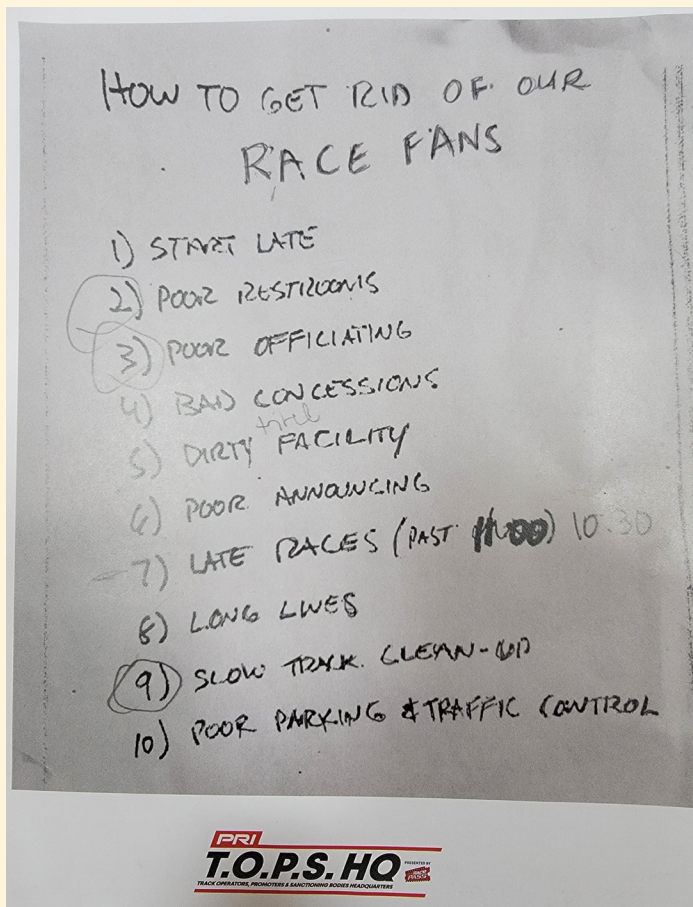 HOW TO GET RID OF OUR
RACE FANS
1) START LATE
2) POOR RESTROOMS
3) POOR OFFICIATING
4) BAD CONCESSIONS
5) DIRTY FACILITY
6) POOR ANNOUNCING
7) LATE RACES (PAST 11:00) 10:30
8) LONG LINES
9) SLOW TRACK CLEAN-UP
10) POOR PARKING & TRAFFIC CONTROL
PRI
T.O.P.S. HQ
PRESENTED BY
RACE PASS
TRACK OPERATORS, PROMOTERS & SANCTIONING BODIES HEADQUARTERS